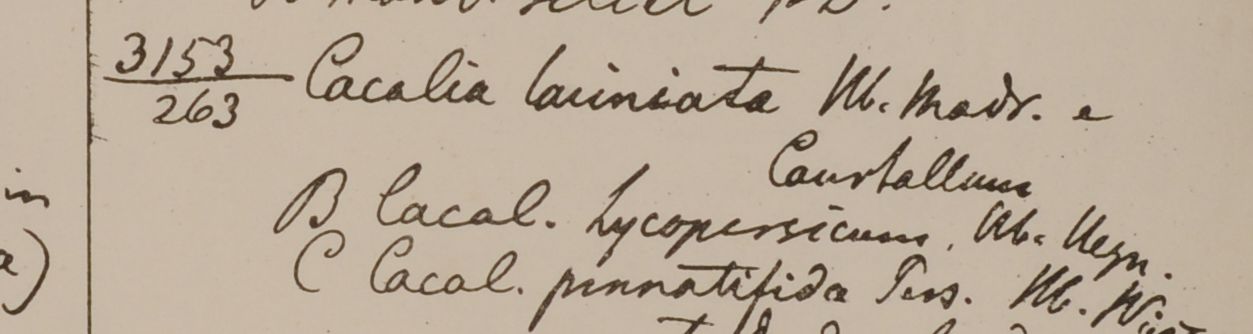 3153
263 Cacalia laciniata Hb. Madr. e
Courtallum
B Cacal. Lycopersicum, Hb. Heyn.
C Cacal. pinnatifida Hb.
in